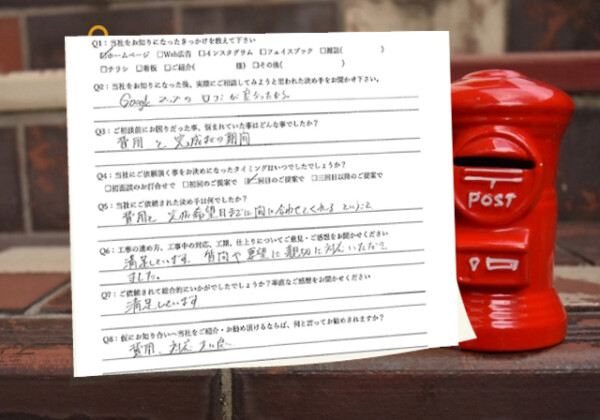 Q1：当社をお知りになったきっかけを教えて下さい
☑ホームページ □Web広告 □インスタグラム □フェイスブック □雑誌(　　　)
□チラシ □看板 □ご紹介(　　　様) □その他(　　　)
Q2：当社をお知りになった後、実際にご相談してみようと思われた決め手をお聞かせ下さい。
Google マップの口コミが良かったから
Q3：ご相談前にお困りだった事、悩まれていた事はどんな事でしたか？
費用と完成までの期間
Q4：当社にご依頼頂く事をお決めになったタイミングはいつでしたでしょうか？
□初面談のお打合せで □初回のご提案で ☑二回目のご提案で □三回目以降のご提案で
Q5：当社に依頼された決め手は何でしたか？
費用と 完成希望日までに間に合わせてくれるということ
Q6：工事の進め方、工事中の対応、工期、仕上りについてご意見・ご感想をお聞かせください
満足しています。質問や要望に親切に対応いただき
ました。
Q7：ご依頼されて総合的にいかがでしたでしょうか？率直なご感想をお聞かせください
満足しています
Q8：仮にお知り合いへ当社をご紹介・お勧め頂けるならば、何と言ってお勧めされますか？
費用、対応
POST